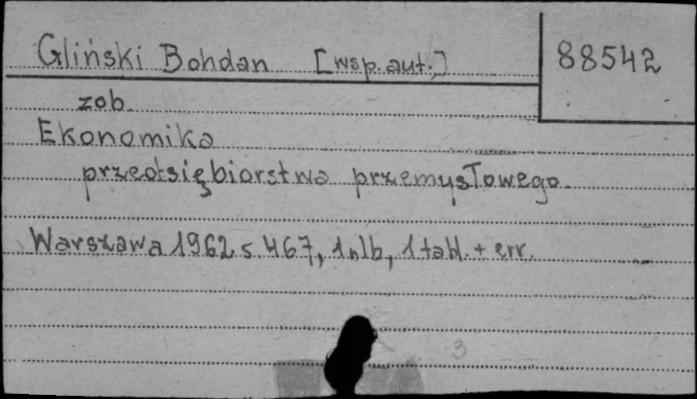 Gliński Bohdan [wsp. aut.]
88542
zob.
Ekonomika
przedsiębiorstwa przemysłowego.
Warszawa 1962 s. 467, 1 nlb, 1 tabl. + err.
3